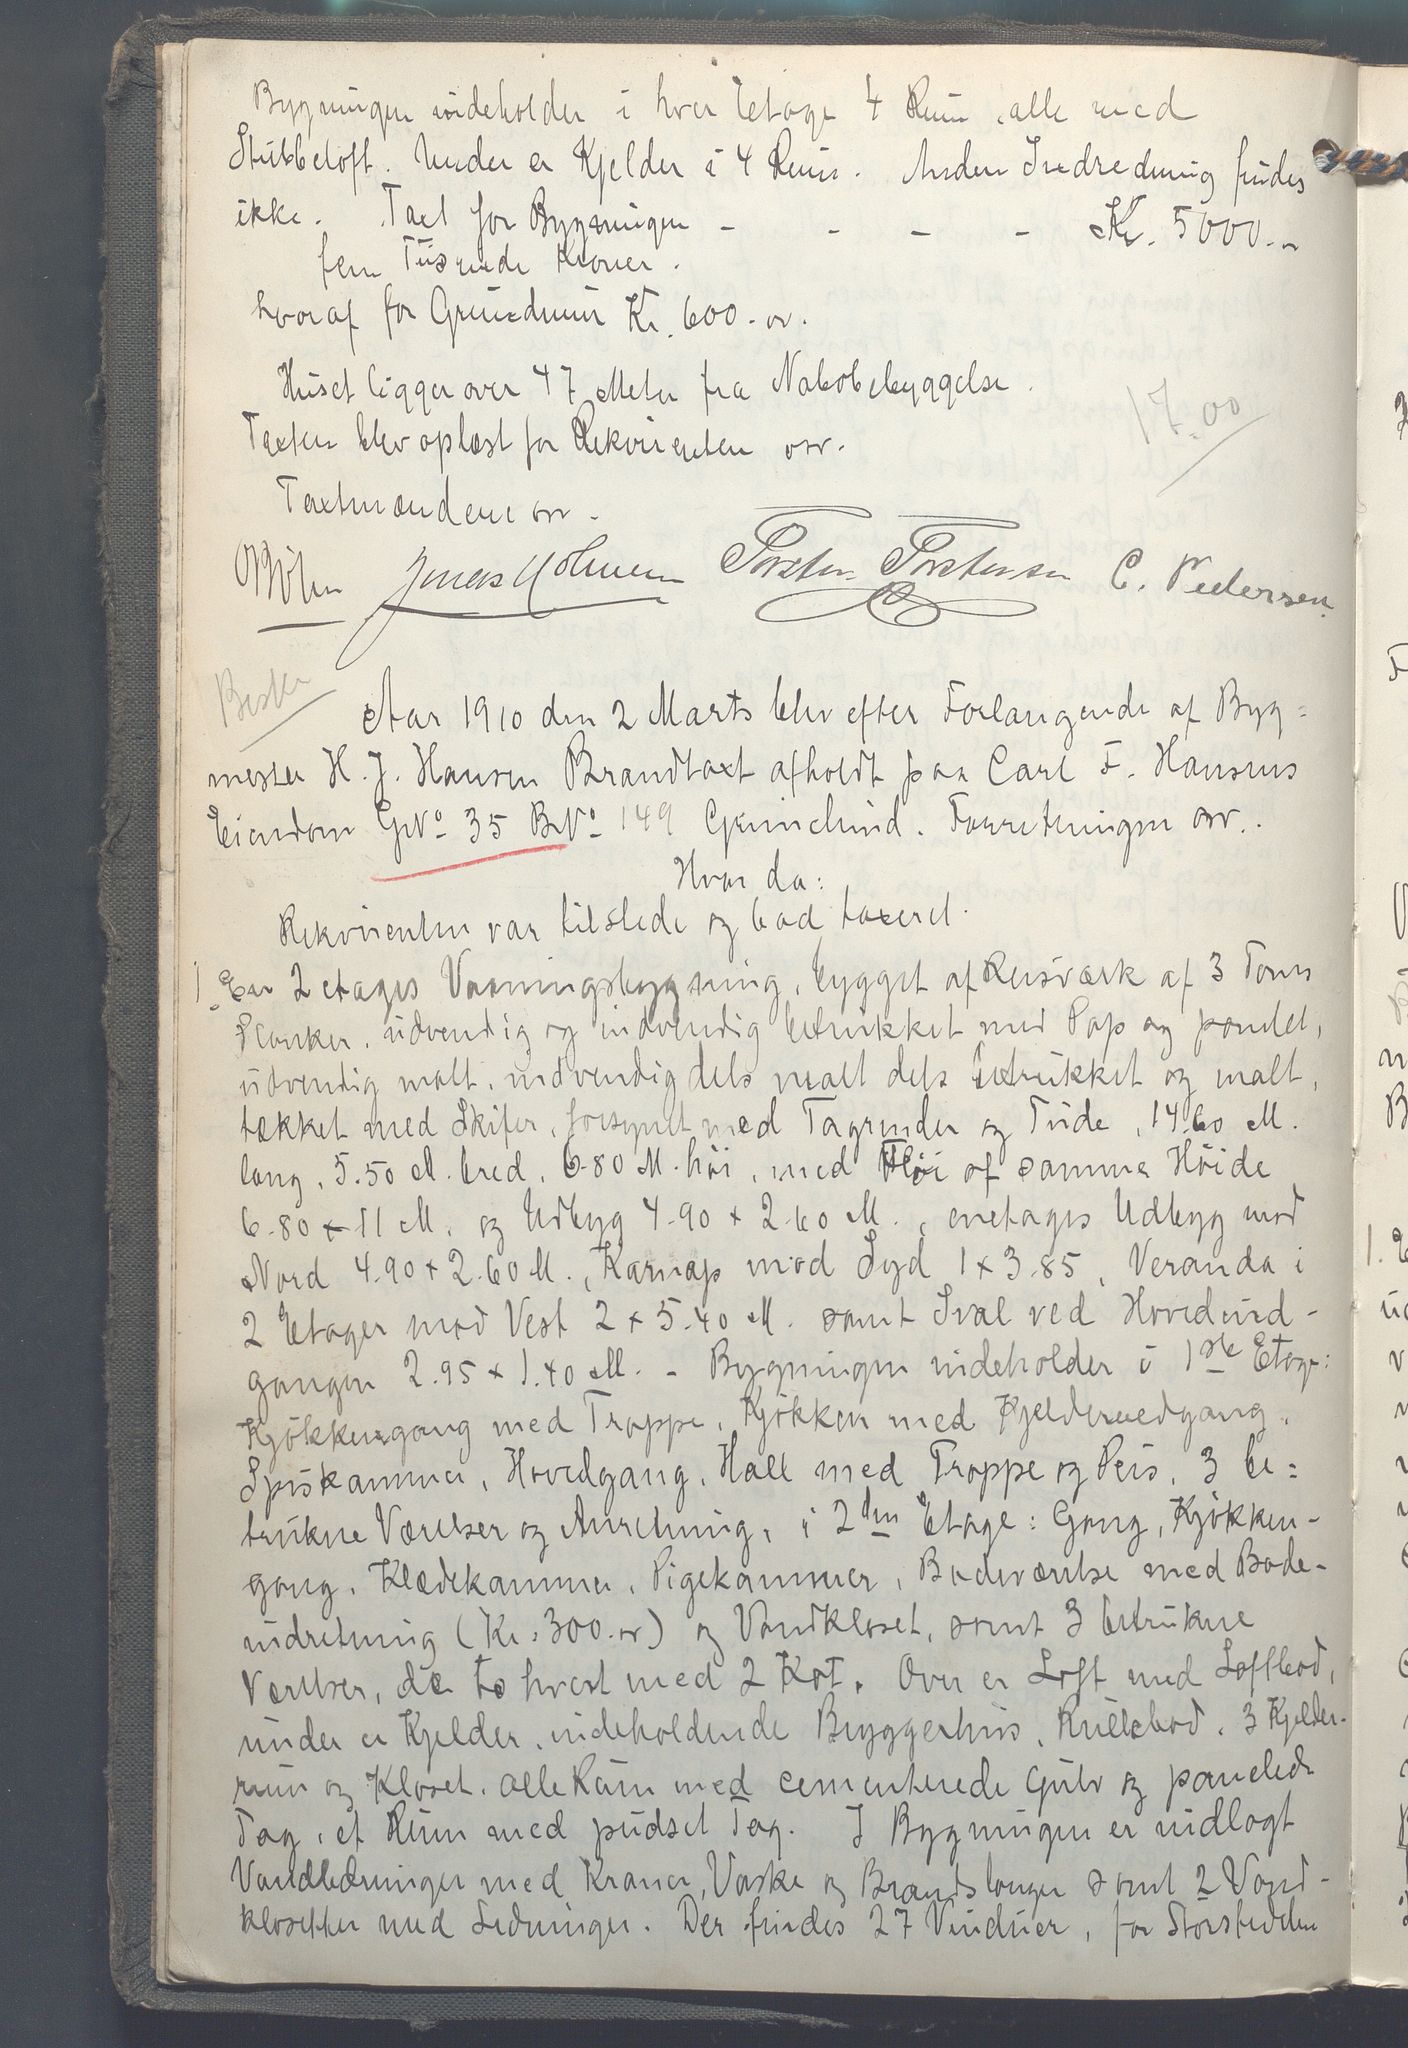 Bygningen indeholder i hver Etage 4 Rum, alle med
Stubbeloft. Under er Kjelder i 4 Rum. Anden Indredning findes
ikke. Taxt for Bygningen - - - - Kr. 5000.-
fem Tusende Kroner.
hvoraf for Grundmur Kr. 600.- osv.
Huset ligger over 47 Meter fra Nabobebyggelse.
17.00
Taxten blev oplæst for Rekvirenten osv.
Taxtmændene osv.
Jonas Holmen Torsten Torstensen C. Pedersen
Aar 1910 den 2 Marts blev efter Forlangende af Byg=
mester H. J. Hansen Brandtaxt afholdt paa Carl F. Hansens
Eiendom GNo 35 BNo 149 Grimelund. Forretningen osv..
Hvor da:
Rekvirenten var tilstede og bad taxeret.
1. En 2 etages Vaaningsbygning, bygget af Reisværk af 3 Toms
Planker, udvendig og indvendig betrukket med Pap og panelet,
udvendig malt, indvendig dels malt dels betrukket og malt,
tækket med Skifer, forsynet med Tagrender og Tude, 14.60 M.
lang, 5.50 M. bred, 6.80 M. høi, med Fløi af samme Høide
6.80 x 11 M. og Udbyg 4.90 x 2.60 M., enetages Udbyg mod
Nord 4.90 x 2.60 M., Karnap mod Syd 1 x 3.85, Veranda i
2 Etager mod Vest 2 x 5.40 M. samt Sval ved Hovedind-
gangen 2.95 x 1.40 M. - Bygningen indeholder i 1ste Etage:
Kjøkkengang med Trappe, Kjøkken med Kjeldernedgang,
Spiskammer, Hovedgang, Hall med Trappe og Peis, 3 be=
trukne Værelser og Anretning, i 2den Etage: Gang, Kjøkken-
gang, Klædekammer, Pigekammer, Badeværelse med Bade-
indretning (Kr. 300.- or) og Vandkloset, samt 3 betrukne
Værelser, de to hvert med 2 Kot. Over er Loft med Loftbod,
under er Kjelder, indeholdende Bryggerhus, Rullebod, 3 Kjelder-
rum og Kloset. Alle Rum med cementerede Gulv og panelede
Tag, et Rum med pudset Tag. I Bygningen er indlagt
Vandledninger med Kraner, Vaske og Brandslanger samt 2 Vand-
klosetter med Ledninger. Der findes 27 Vinduer, for Størstedelen